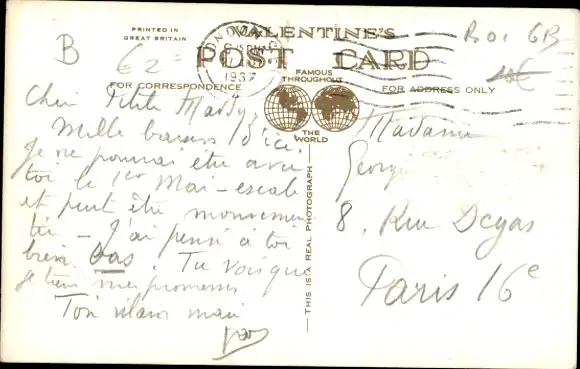 PRINTED IN
GREAT BRITAIN
VALENTINE'S
POST CARD
FOR CORRESPONDENCE
FAMOUS
THROUGHOUT
THE
WORLD
FOR ADDRESS ONLY
THIS IS A REAL PHOTOGRAPH
1937
B
€2
10€
Chère Petite
Mille baisers d'ici.
Je ne pourrai être avec
toi le 1er Mai - escale
et peut être mouvemen
tée - J'ai pensé à toi
bien bas. Tu vois que
je tiens mes promesses
Ton
Madame
8, Rue Degas
Paris 16e